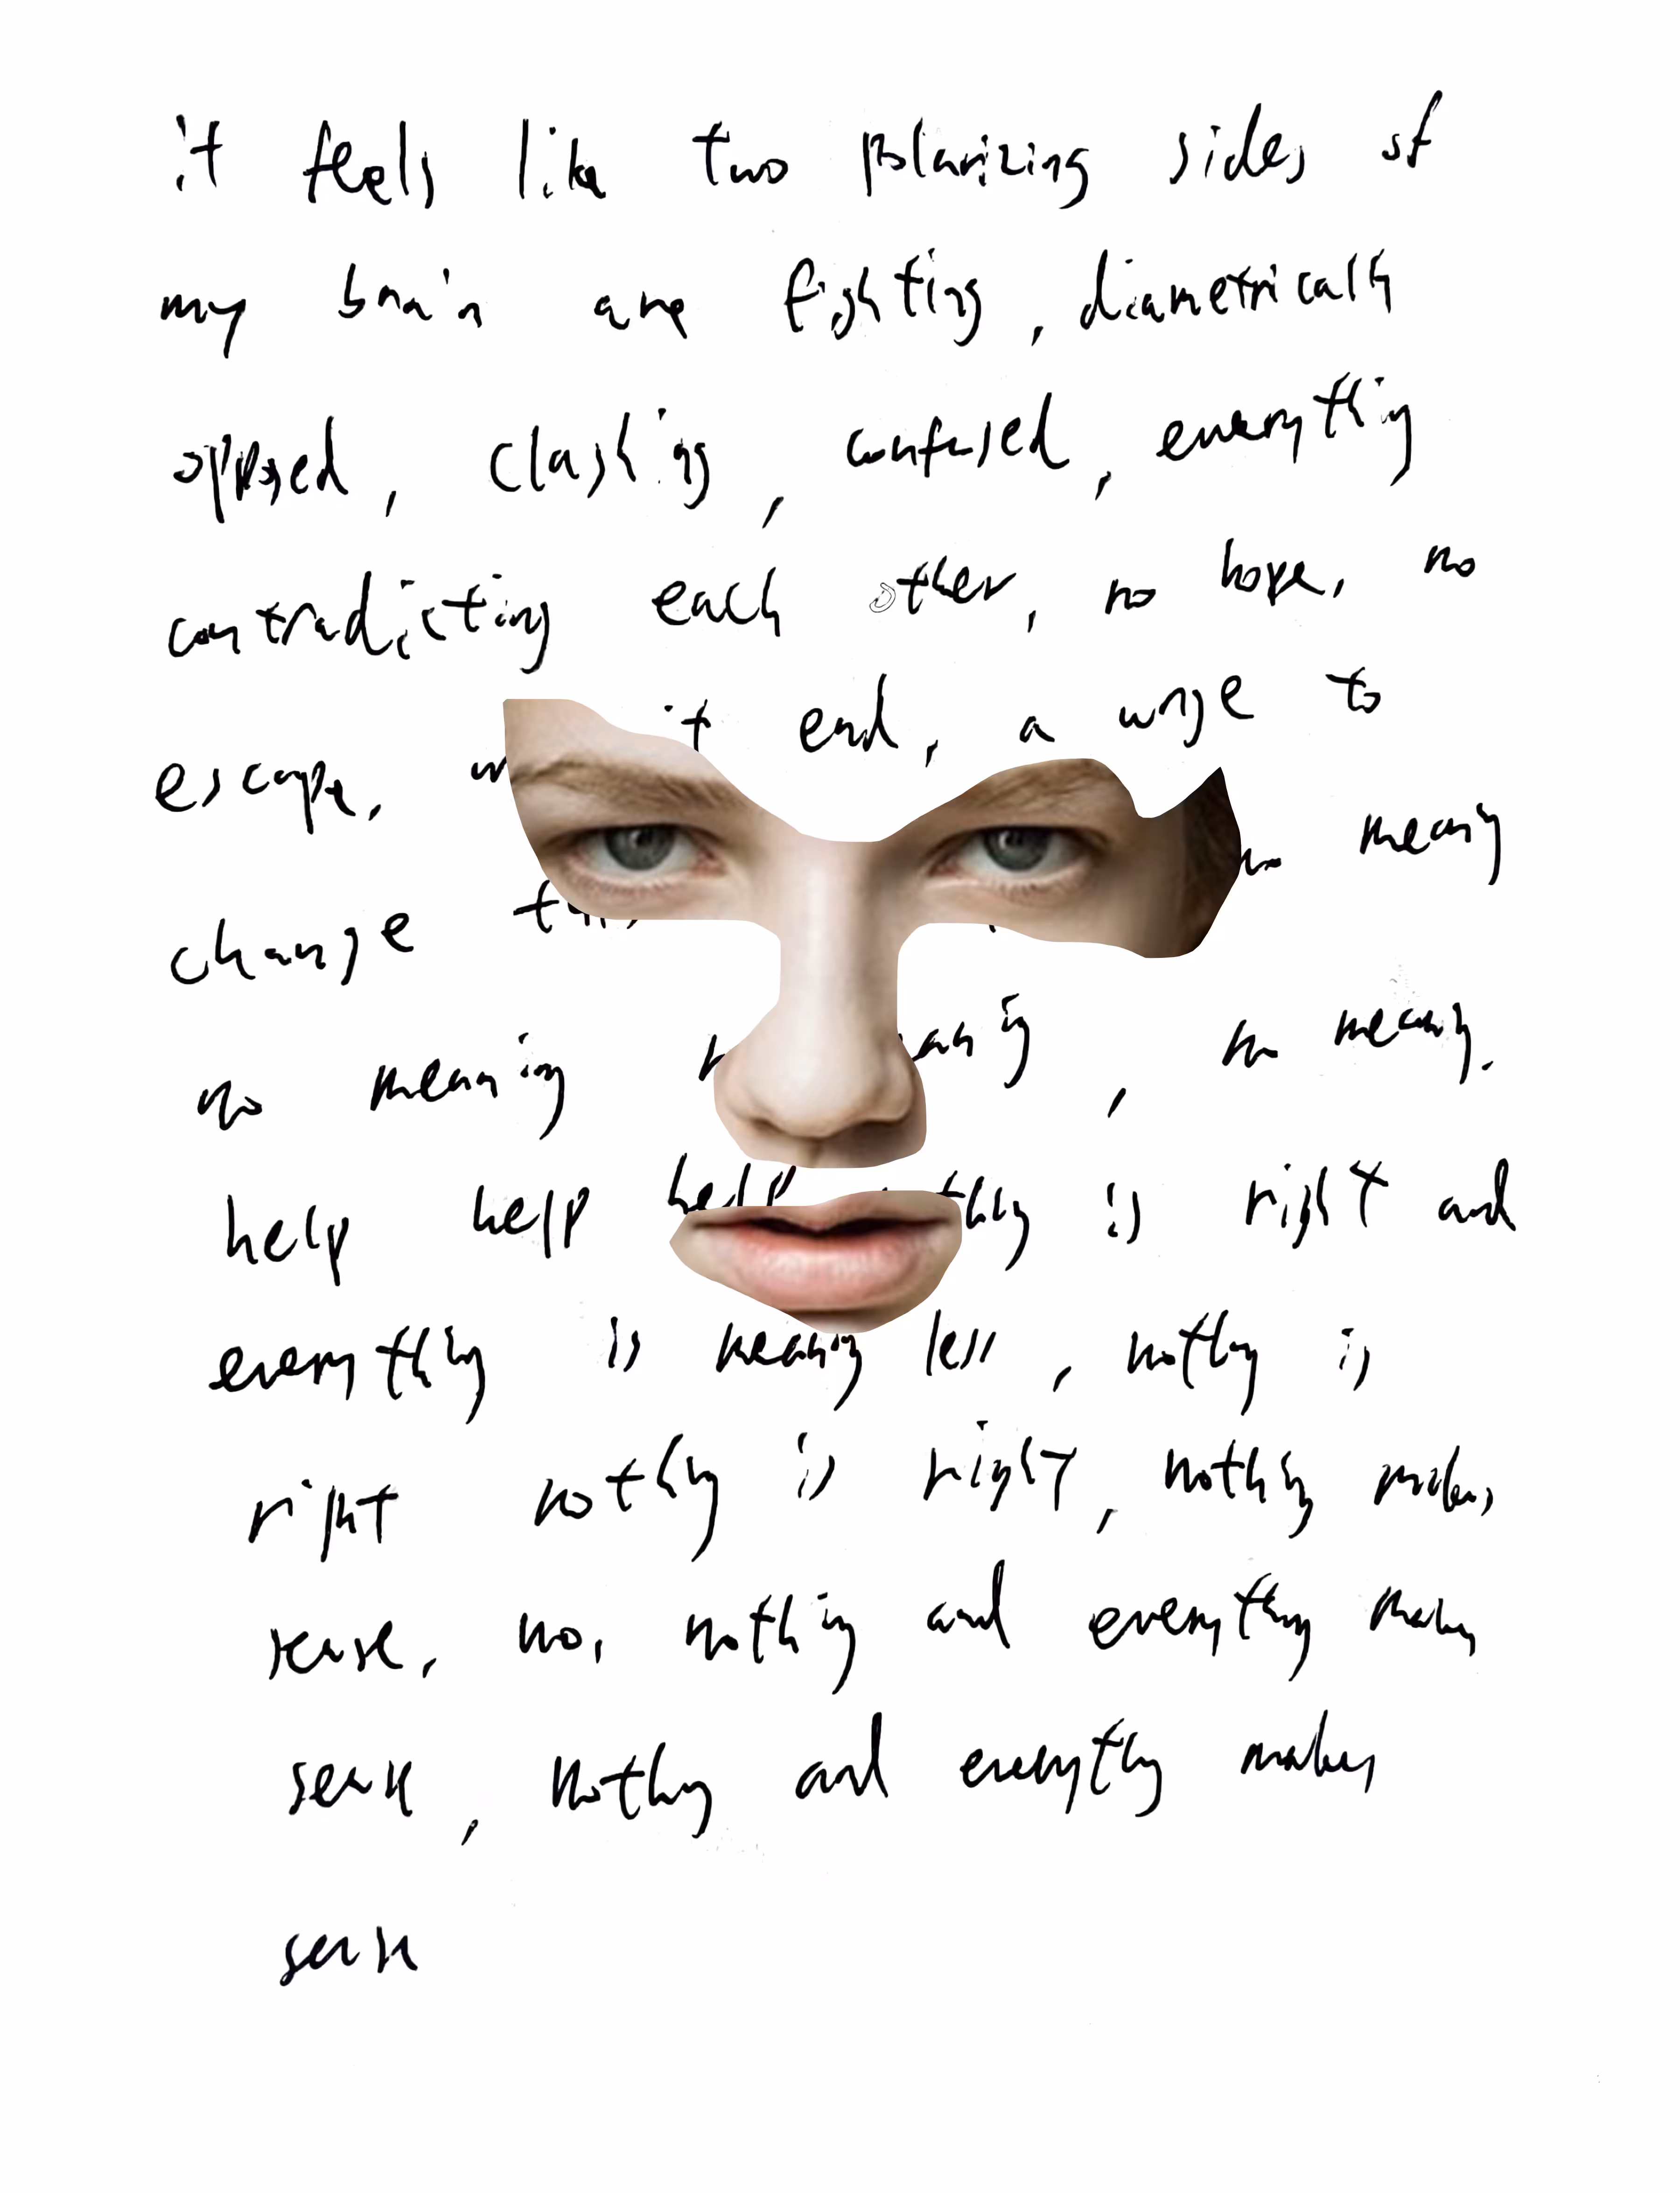 it feels like two polarizing sides of
my brain are fighting, diametrically
opposed, clashing, confused, everything
contradicting each other, no hope, no
escape, it end, a urge to
change no meaning
no meaning , no meaning.
help help help is right and
everything is meaningless, nothing is
right nothing is right, nothing makes
sense, no, nothing and everything makes
sense, nothing and everything makes
sense